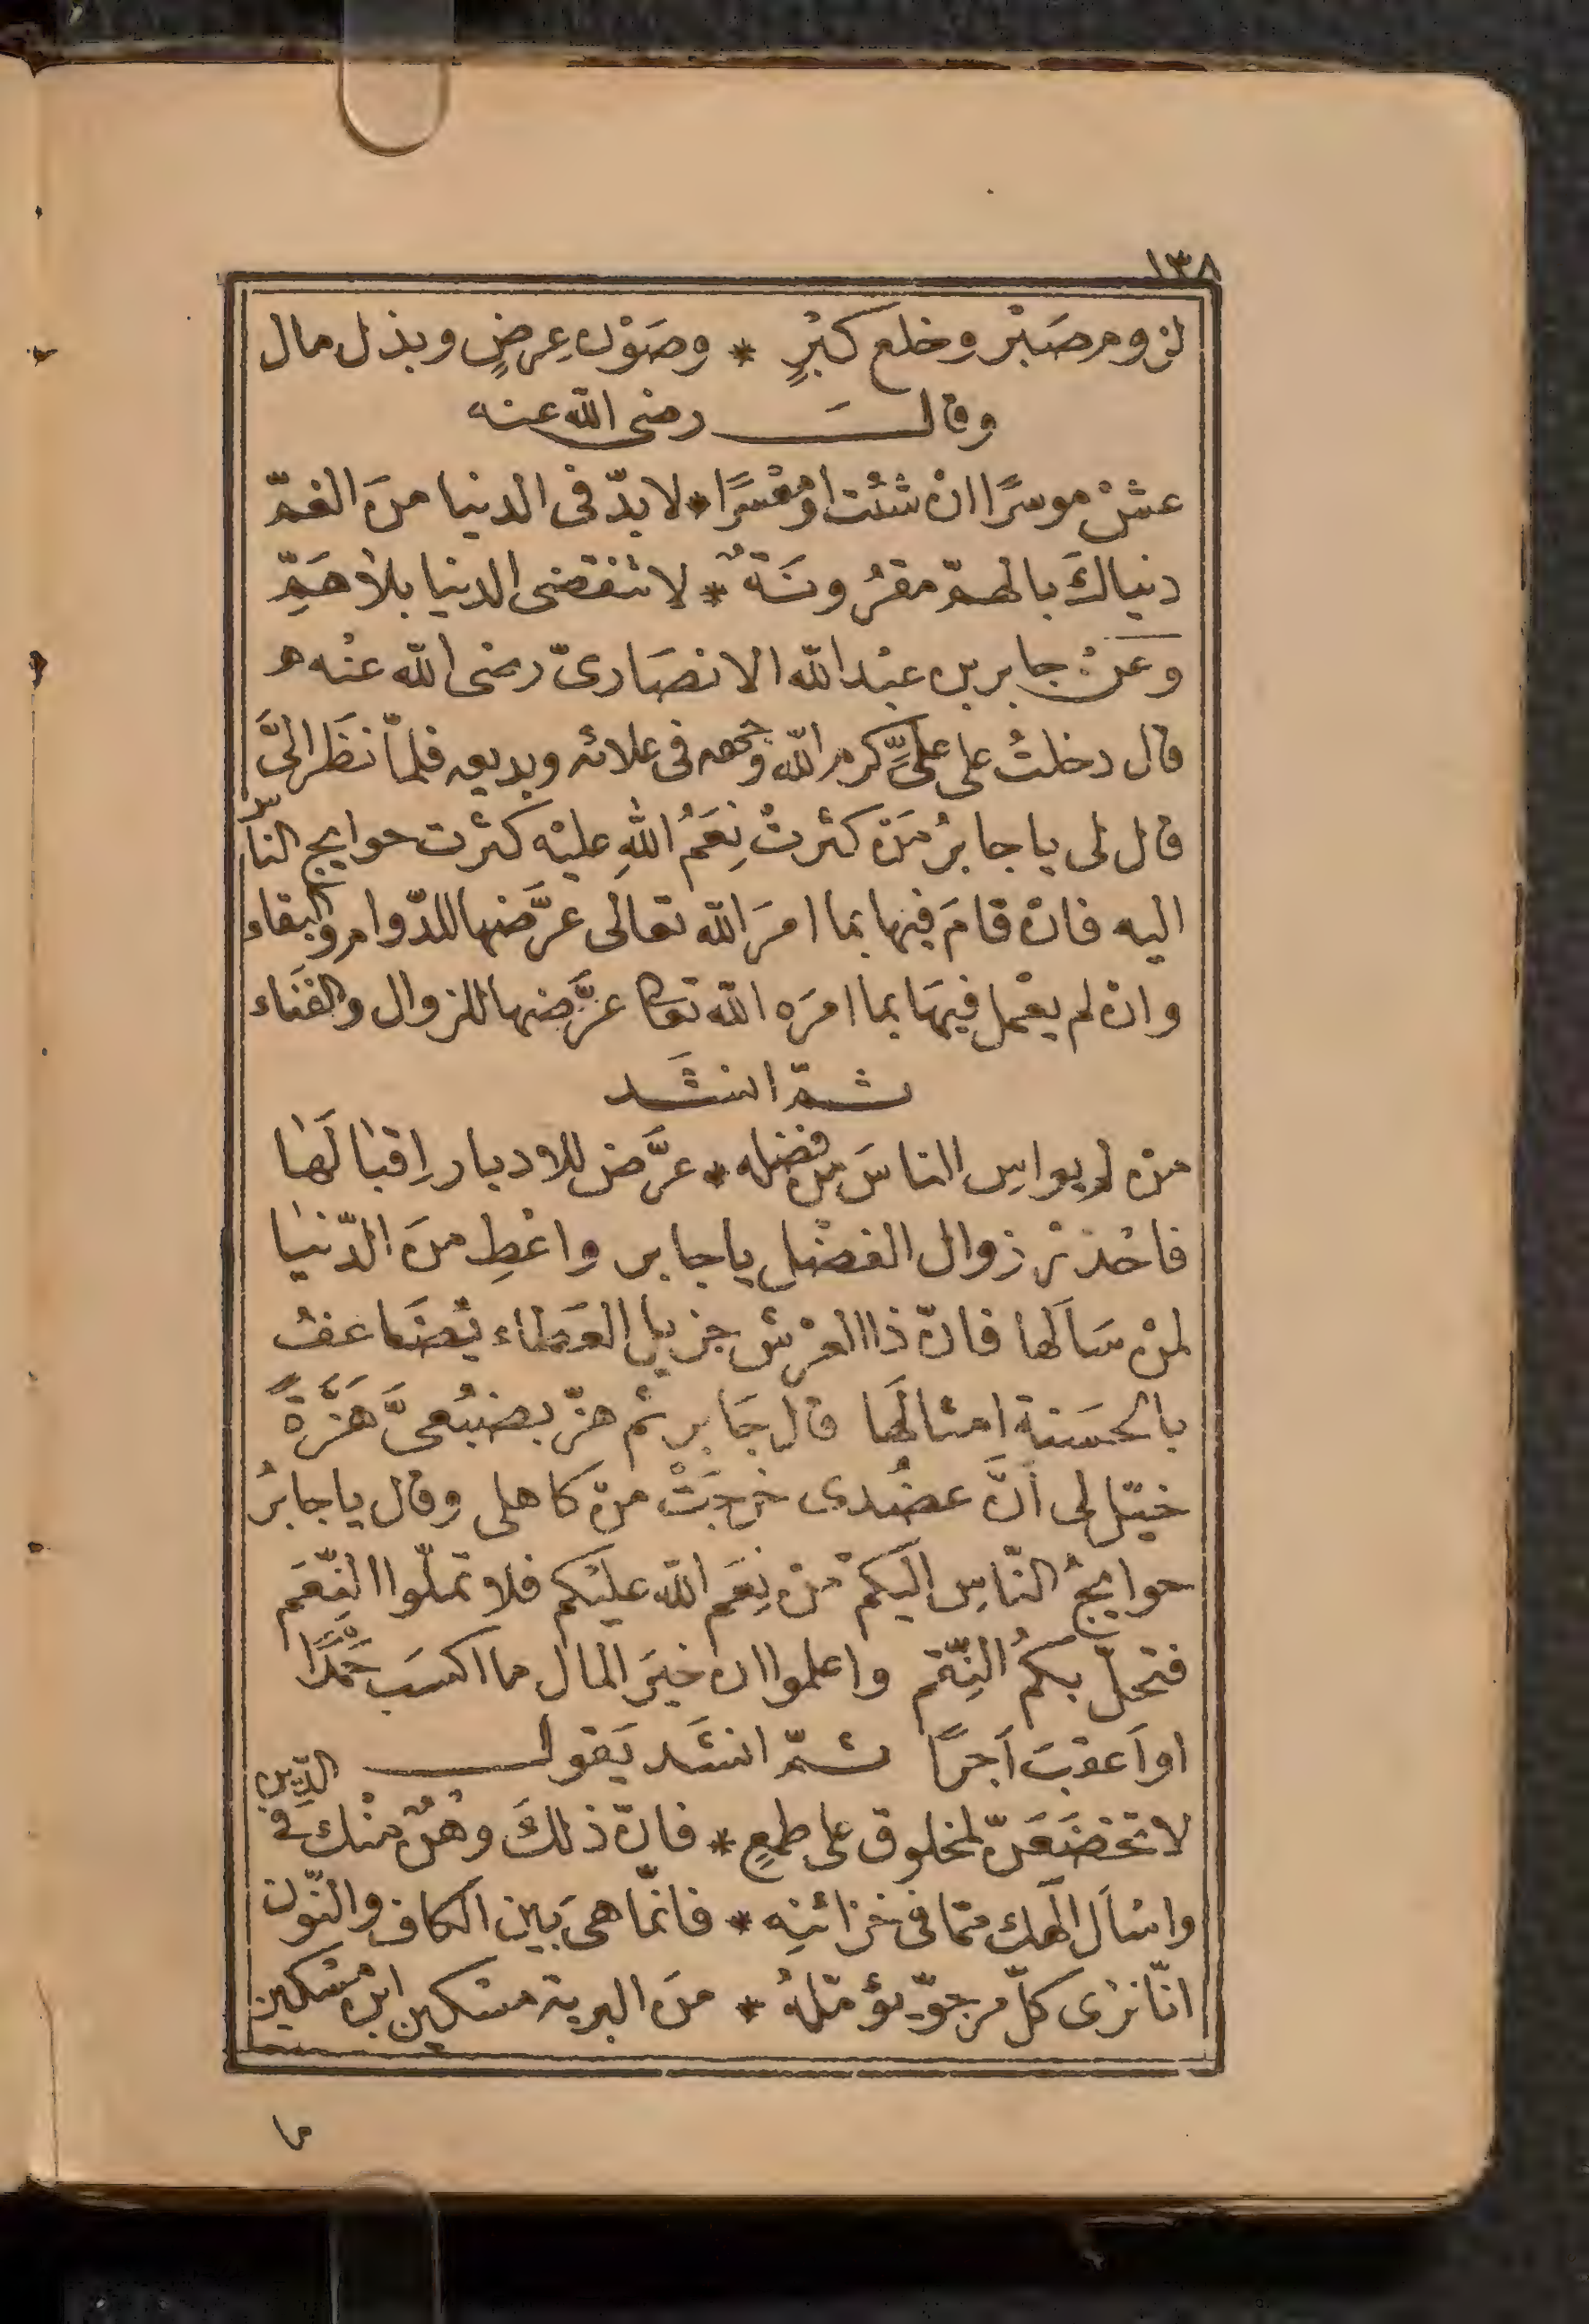 ١٣٨
لزوم صَبْر وخلع كبْرٍ * وصَوْن عِرضٍ وبذل مال
وقالَ رضى الله عنه
عشْ موسرًا انْ شئْت او مُعْسرًا * لا بدّ فى الدنيا منَ الغمّ
دنياكَ بالهمّ مقرُونَةٌ * لا تنقضى الدنيا بلا هَمِّ
وَعَنْ جابر بن عبْد الله الانصَارىّ رضى الله عنْه
قال دخلتُ على علىٍّ كرم الله وجهه فى علائه وبديعه فلمّا نظَر الىَّ
قال لى يا جابرُ مَنْ كثرتْ نِعَمُ اللهِ عليْه كثرت حوايج الناس
اليه فانْ قامَ فيها بما امرَ الله تعالى عرَّضها للدّوام والبقاء
وانْ لم يعْمل فيهَا بما امرَه الله تعالى عرَّضها للزوال والفَنَاء
ثمّ انشَد
منْ لم يواسِ الناسَ من فضله * عرَّض للادبار اِقبالَها
فاحْذرْ زوال الفضْل يا جابر واعْطِ منَ الدّنيا
لمنْ سَالَها فانّ ذا العرْش جزيل العَطاء يُضَاعفُ
بالحسَنة امثالَها قال جَابر ثم هزّ بضبْعىَّ هَزَّةً
خيّل لى أنَّ عضُدى خرجَتْ منْ كاهلى وقال يا جابرُ
حوايجُ النّاسِ اليكمْ منْ نِعَم الله عليْكم فلا تملّوا النِّعَم
فتحلّ بكمُ النِّقم واعلموا ان خيرَ المال ما اكسَب حَمْدًا
او اَعقبَ اَجرًا ثمّ انشَد يَقول
لا تخضَعَنّ لمخلوق على طمعٍ * فانّ ذلكَ وهْنٌ منْك فى الدِّين
واسْاَل الَهك ممّا فى خزائنِه * فانّما هى بَين الكاف والنّون
انّا نرى كلّ مرجوّ يؤمّلهُ * منَ البرية مسْكين ابن مسْكين
ما